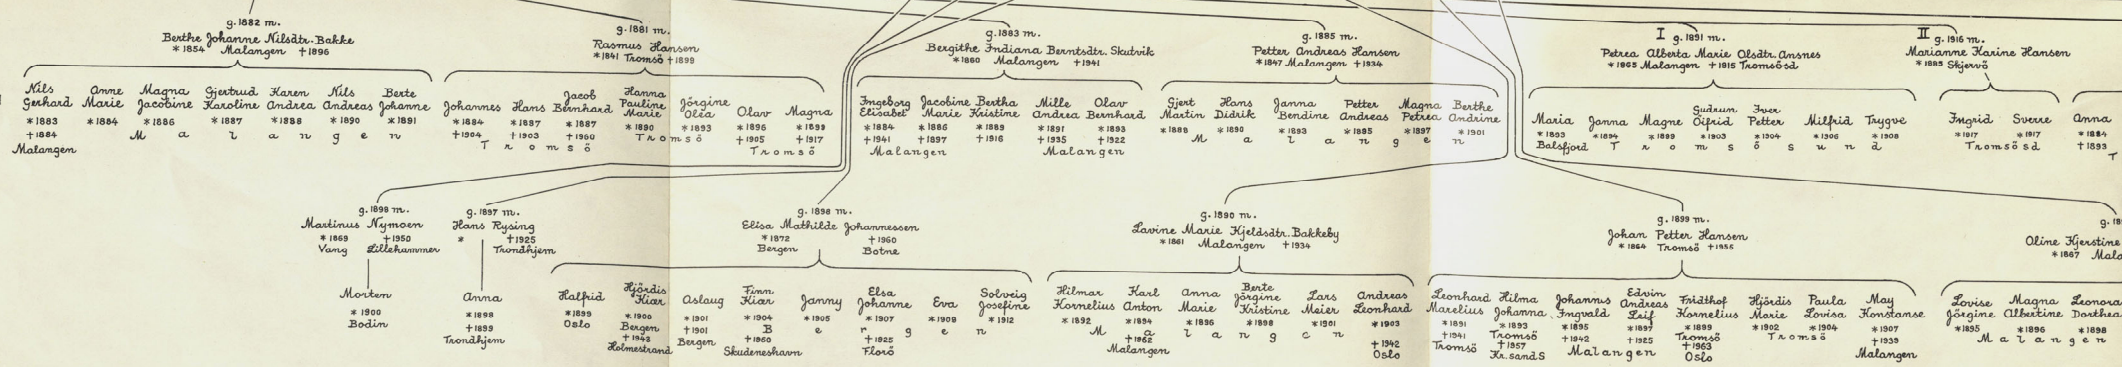 g. 1882 m.
Berthe Johanne Nilsdtr. Bakke
*1854 Malangen †1896
Nils Gerhard
*1883
†1884
Malangen
Anne Marie
*1884
Magna Jacobine
*1886
Gjertrud Karoline
*1887
Karen Andrea
*1888
Nils Andreas
*1890
Berte Johanne
*1891
Malangen
g. 1881 m.
Rasmus Hansen
*1841 Tromsö †1899
Johannes
*1884
†1904
Hans
*1887
†1903
Jacob Bernhard
*1887
†1960
Tromsö
Hanna Pauline Marie
*1890
Jörgine Olea
*1893
Tromsö
Olav
*1896
†1905
Magna
*1899
†1917
Tromsö
g. 1883 m.
Bergithe Indiana Berntsdtr. Skutvik
*1860 Malangen †1941
Ingeborg Elisabet
*1884
†1941
Jacobine Marie
*1886
†1897
Malangen
Bertha Kristine
*1889
†1916
Mille Andrea
*1891
†1935
Olav Bernhard
*1893
†1922
Malangen
g. 1885 m.
Petter Andreas Hansen
*1847 Malangen †1934
Gjert Martin
*1888
Hans Didrik
*1890
Janna Bendine
*1893
Petter Andreas
*1885
Magna Petrea
*1897
Berthe Andrine
*1901
Malangen
I g. 1891 m.
Petrea Alberta Marie Olsdtr. Ansnes
*1865 Malangen †1915 Tromsösd
Maria
*1893
Balsfjord
Janna
*1894
Magne
*1899
Gudrun Oifrid
*1903
Iver Petter
*1904
Milfrid
*1906
Trygve
*1908
Tromsösund
II g. 1916 m.
Marianne Karine Hansen
*1885 Skjervö
Ingrid
*1917
Sverre
*1917
Tromsösd
Anna
*1884
†1893
T
g. 1898 m.
Martinus Nymoen
*1869 †1950
Vang Lillehammer
Morten
*1900
Bodin
g. 1897 m.
Hans Rysing
* †1925
Trondhjem
Anna
*1898
†1899
Trondhjem
g. 1898 m.
Elisa Mathilde Johannessen
*1872 †1960
Bergen Botne
Halfrid
*1899
Oslo
Hjördis Kiær
*1900
Bergen
†1943
Holmestrand
Aslaug
*1901
†1901
Bergen
Finn Kiær
*1904
†1960
Skudeneshavn
Janny
*1905
Elsa Johanne
*1907
†1925
Florö
Eva
*1908
Solveig Josefine
*1912
Bergen
g. 1890 m.
Lavine Marie Kjeldsdtr. Bakkeby
*1861 Malangen †1934
Hilmar Kornelius
*1892
Karl Anton
*1894
†1962
Malangen
Anna Marie
*1896
Berte Jörgine Kristine
*1898
Lars Meier
*1901
Malangen
Andreas Leonhard
*1903
†1942
Oslo
g. 1899 m.
Johan Petter Hansen
*1864 Tromsö †1955
Leonhard Marelius
*1891
†1941
Tromsö
Hilma Johanna
*1893
Tromsö
†1957
Kr.sand S
Johanns Ingvald
*1895
†1942
Edvin Andreas Leif
*1897
†1925
Malangen
Fridthof Kornelius
*1899
Tromsö
†1963
Oslo
Hjördis Marie
*1902
Paula Lovisa
*1904
Tromsö
May Konstanse
*1907
†1939
Malangen
g. 18
Oline Kjerstine
*1867 Mala
Lovise Jörgine
*1895
Magna Albertine
*1896
Leonora Dorthea
*1898
Malangen